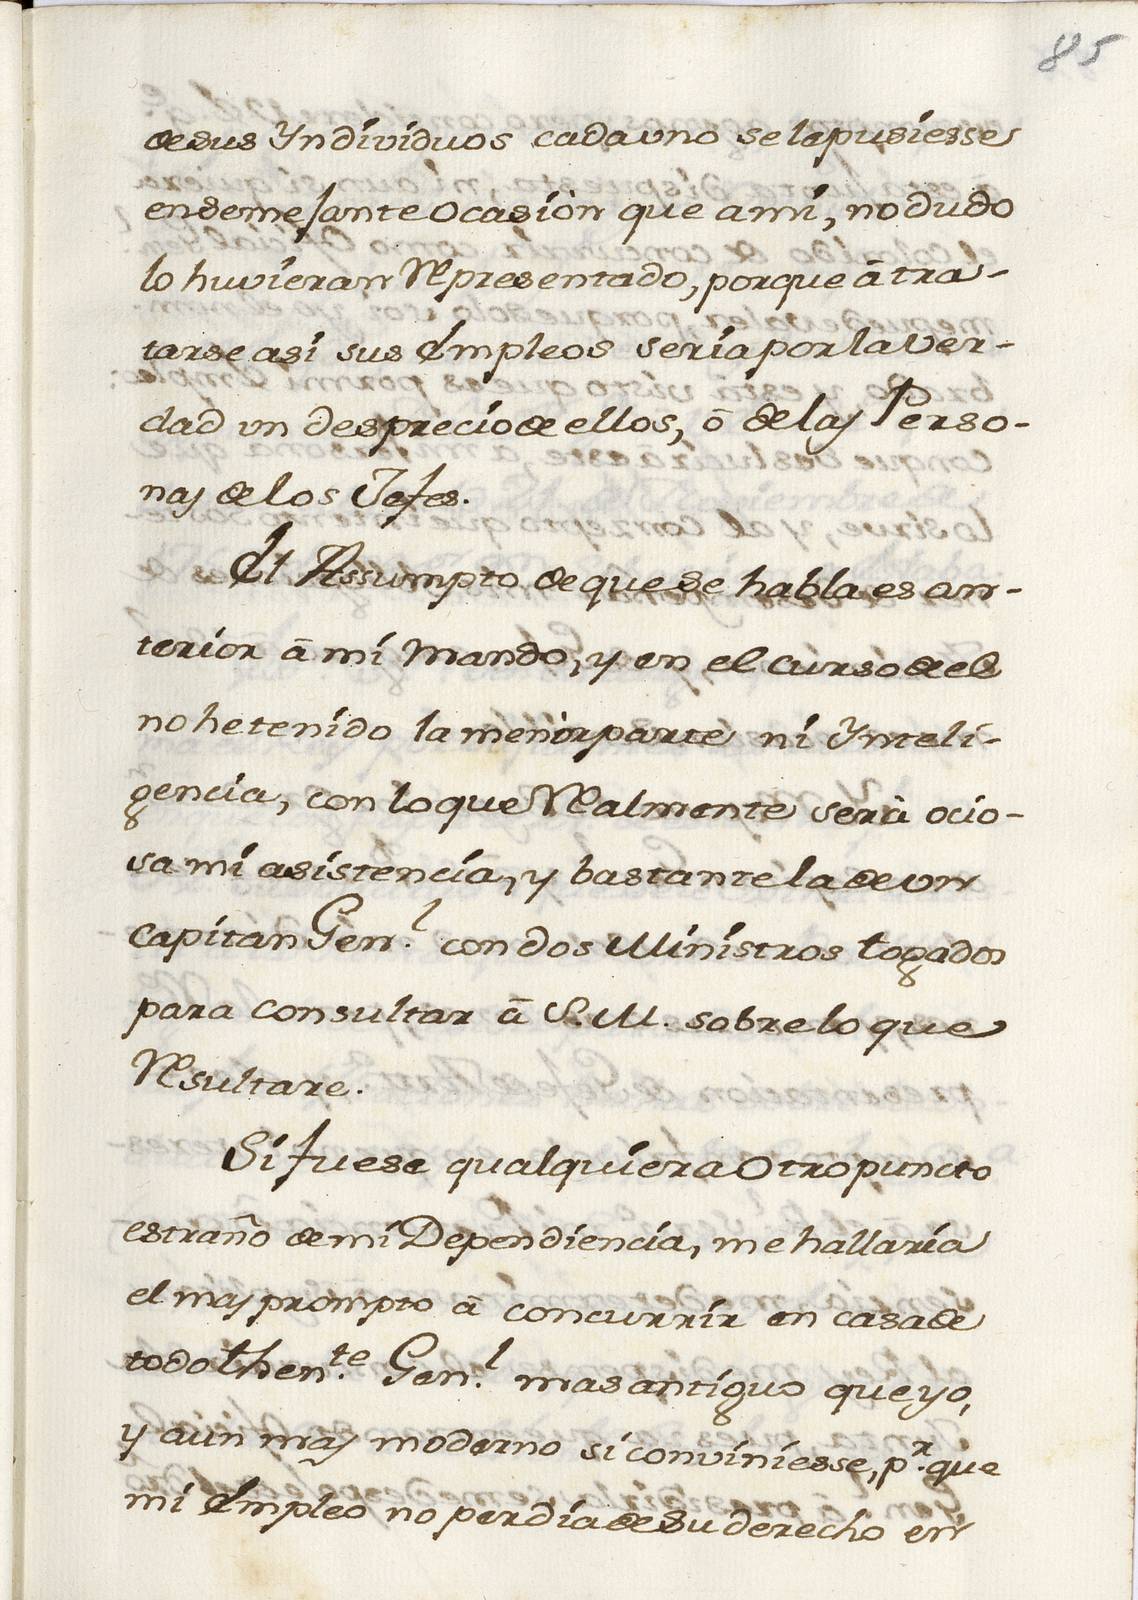 85
desus Yndividuos cadauno selepusiesse
ensemejante ocasión que amí, nodudo
lo huvieran Representado, porque ā tra-
tarse asi sus Empleos seria por la Ver-
dad un desprecio de ellos, ō de las Perso-
nas de los Jefes.
El Assumpto de que se habla es an-
terior ā mi Mando, y en el curso de el
no he tenido la menor parte ni Yntelí-
gencia, con lo que Realmente será ocio-
sa mi asistencia, y bastante la de un
Capitan Gen.l con dos Ministros togados
para Consultar ā S.M. sobre lo que
Resultare.
Si fuese qualquiera Otro puncto
estraño de mi Dependiencia, me hallaría
el mas prompto ā concurrir en casa de
todo Then.te Gen.l mas antiguo que yo,
y aún mas moderno si conviniesse, p.r que
mi Empleo no perdía de su derecho en